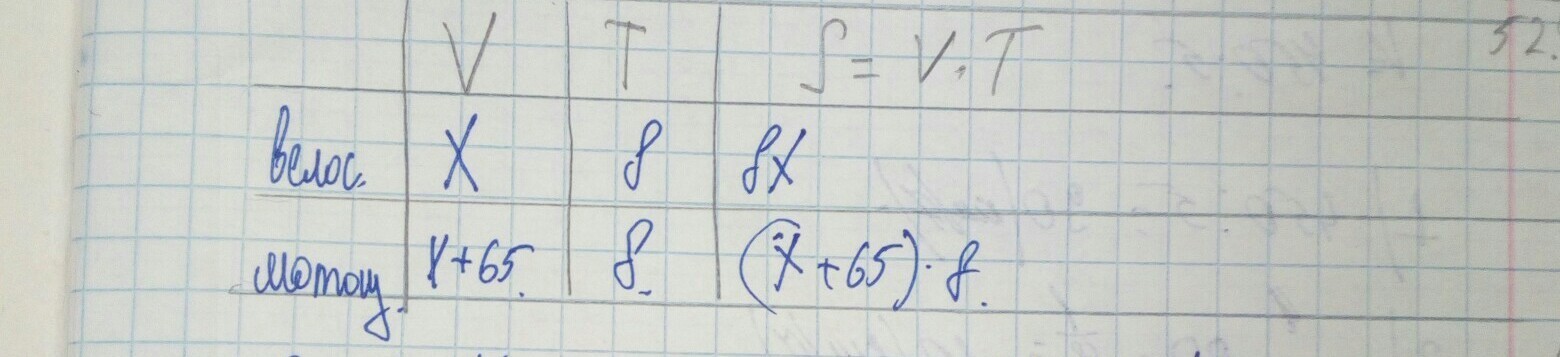 V T S = V · T 52.
велос. X 8 8X
мотоц. X+65. 8. (X+65)·8.